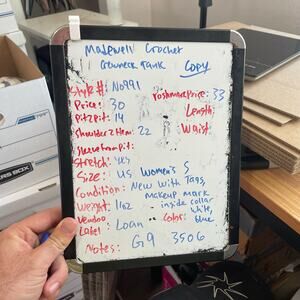 Madewell Crochet
Crewneck Tank Copy
Style #: No991
Price: 30
Poshmark Price: 33
Pit2Pit: 14
Length:
Shoulder2Hem: 22
Waist:
Sleevefrompit:
Stretch: yes
Size: US Women's S
Condition: New with Tags,
makeup mark
inside collar
Weight: 11oz
Vendoo
Label: Loan
Color: white,
blue
Notes: G9 3506
ERS BOX